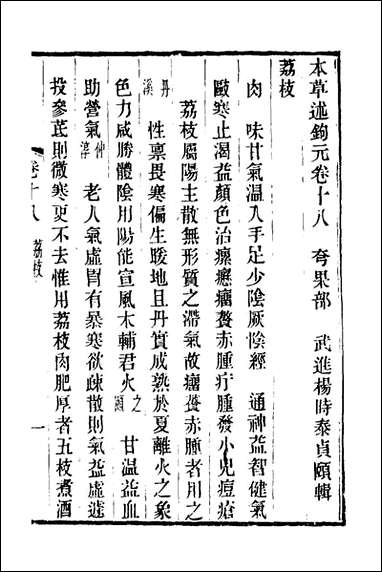 本草述鉤元卷十八　夸果部　武進楊時泰貞頤輯
荔枝
肉　味甘氣溫入手足少陰厥陰經　通神益智健氣
毆寒止渴益顏色治瘰癧瘤贅赤腫疔腫發小兒痘瘡
荔枝屬陽主散無形質之滯氣故瘤贅赤腫者用之
丹溪　性稟畏寒偏生暖地且丹實成熟於夏離火之象
色力咸勝體陰用陽能宣風木輔君火之頤　甘溫益血
助營氣仲淳　老人氣虛胃有暴寒欲疎散則氣益虛遽
投參芪則微寒更不去惟用荔枝肉肥厚者五枝煮酒
卷十八　荔枝　一